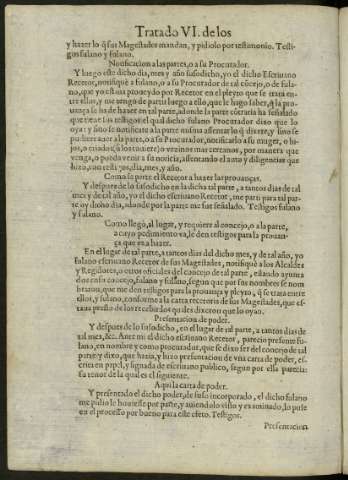 Tratado VI. de los
y hazer lo q̃ sus Magestades mandan, y pidiolo por testimonio. Testi-
gos fulano y fulano.
Notificacion a las partes, o a su Procurador.
Y luego este dicho dia, mes y año susodicho, yo el dicho Escriuano
Recetor, notifiquè a fulano, o a Procurador de tal cõcejo, o de fula-
no, que yo estoua proueydo por Recetor en el pleyto que se trata en-
tre ellos, y me vengo de partir luego a ello, que le hago saber, q̃ la pro-
uança se ha de hazer en tal parte, adonde la parte cõtraria ha señalado
que tiene sus testigos: el qual dicho fulano Procurador dixo que lo
oya: y sino se notificare a la parte misma assentar lo q̃ dixere, y sino se
pudiere auer a la parte, o a su Procurador, notificarlo a su muger, o hi-
jos, o criados (q̃ los tuuiere) o vezinos mas cercanos, por manera que
venga, o pueda venir a su noticia, assentando el auto y diligencias que
hizo, con testigos, dia, mes, y año.
Como se parte el Recetor a hazer las prouanças.
Y despues de lo susodicho en la dicha tal parte, a tantos dias de tal
mes y de tal año, yo el dicho escriuano Recetor, me parti para tal par-
te oy dicho dia, adonde por la parte me fue señalado. Testigos fulano
y fulano.
Como llegò, al lugar, y requiere al concejo, o a la parte,
a cuyo pedimiento va, le den testigos para la prouan-
ça que es a hazer.
En el lugar de tal parte, a tantos dias del dicho mes, y de tal año, yo
fulano escriuano Recetor de sus Magestades, notifiquè a los Alcaldes
y Regidores, o otros oficiales del concejo de tal parte, estando ayunta
dos en su concejo, fulano y fulano, segun que por sus nombres se nom
braron, que me den testigos para la prouança y pleyto, q̃ se trata entre
ellos, y fulano, conforme a la carta recetoria de sus Magestades, que es-
taua presto de los recebir: los quales dixeron que lo oyan.
Presentacion de poder.
Y despues de lo susodicho, en el lugar de tal parte, a tantos dias de
tal mes, &c. Ante mi el dicho escriuano Recetor, parecio presente fu-
lano, en nombre y como procurador, que se dixo ser del concejo de tal
parte y dixo, que hazia, y hizo presentacion de vna carta de poder, es-
crita en papel, y signada de escriuano publico, segun por ella parecia:
su tenor de la qual es el siguiente.
Aqui la carta de poder.
Y presentado el dicho poder, de suso incorporado, el dicho fulano
me pidio le houiesse por parte, y auiendolo visto y examinado, lo puse
en el processo por bueno para este efeto. Testigos.
Presentacion